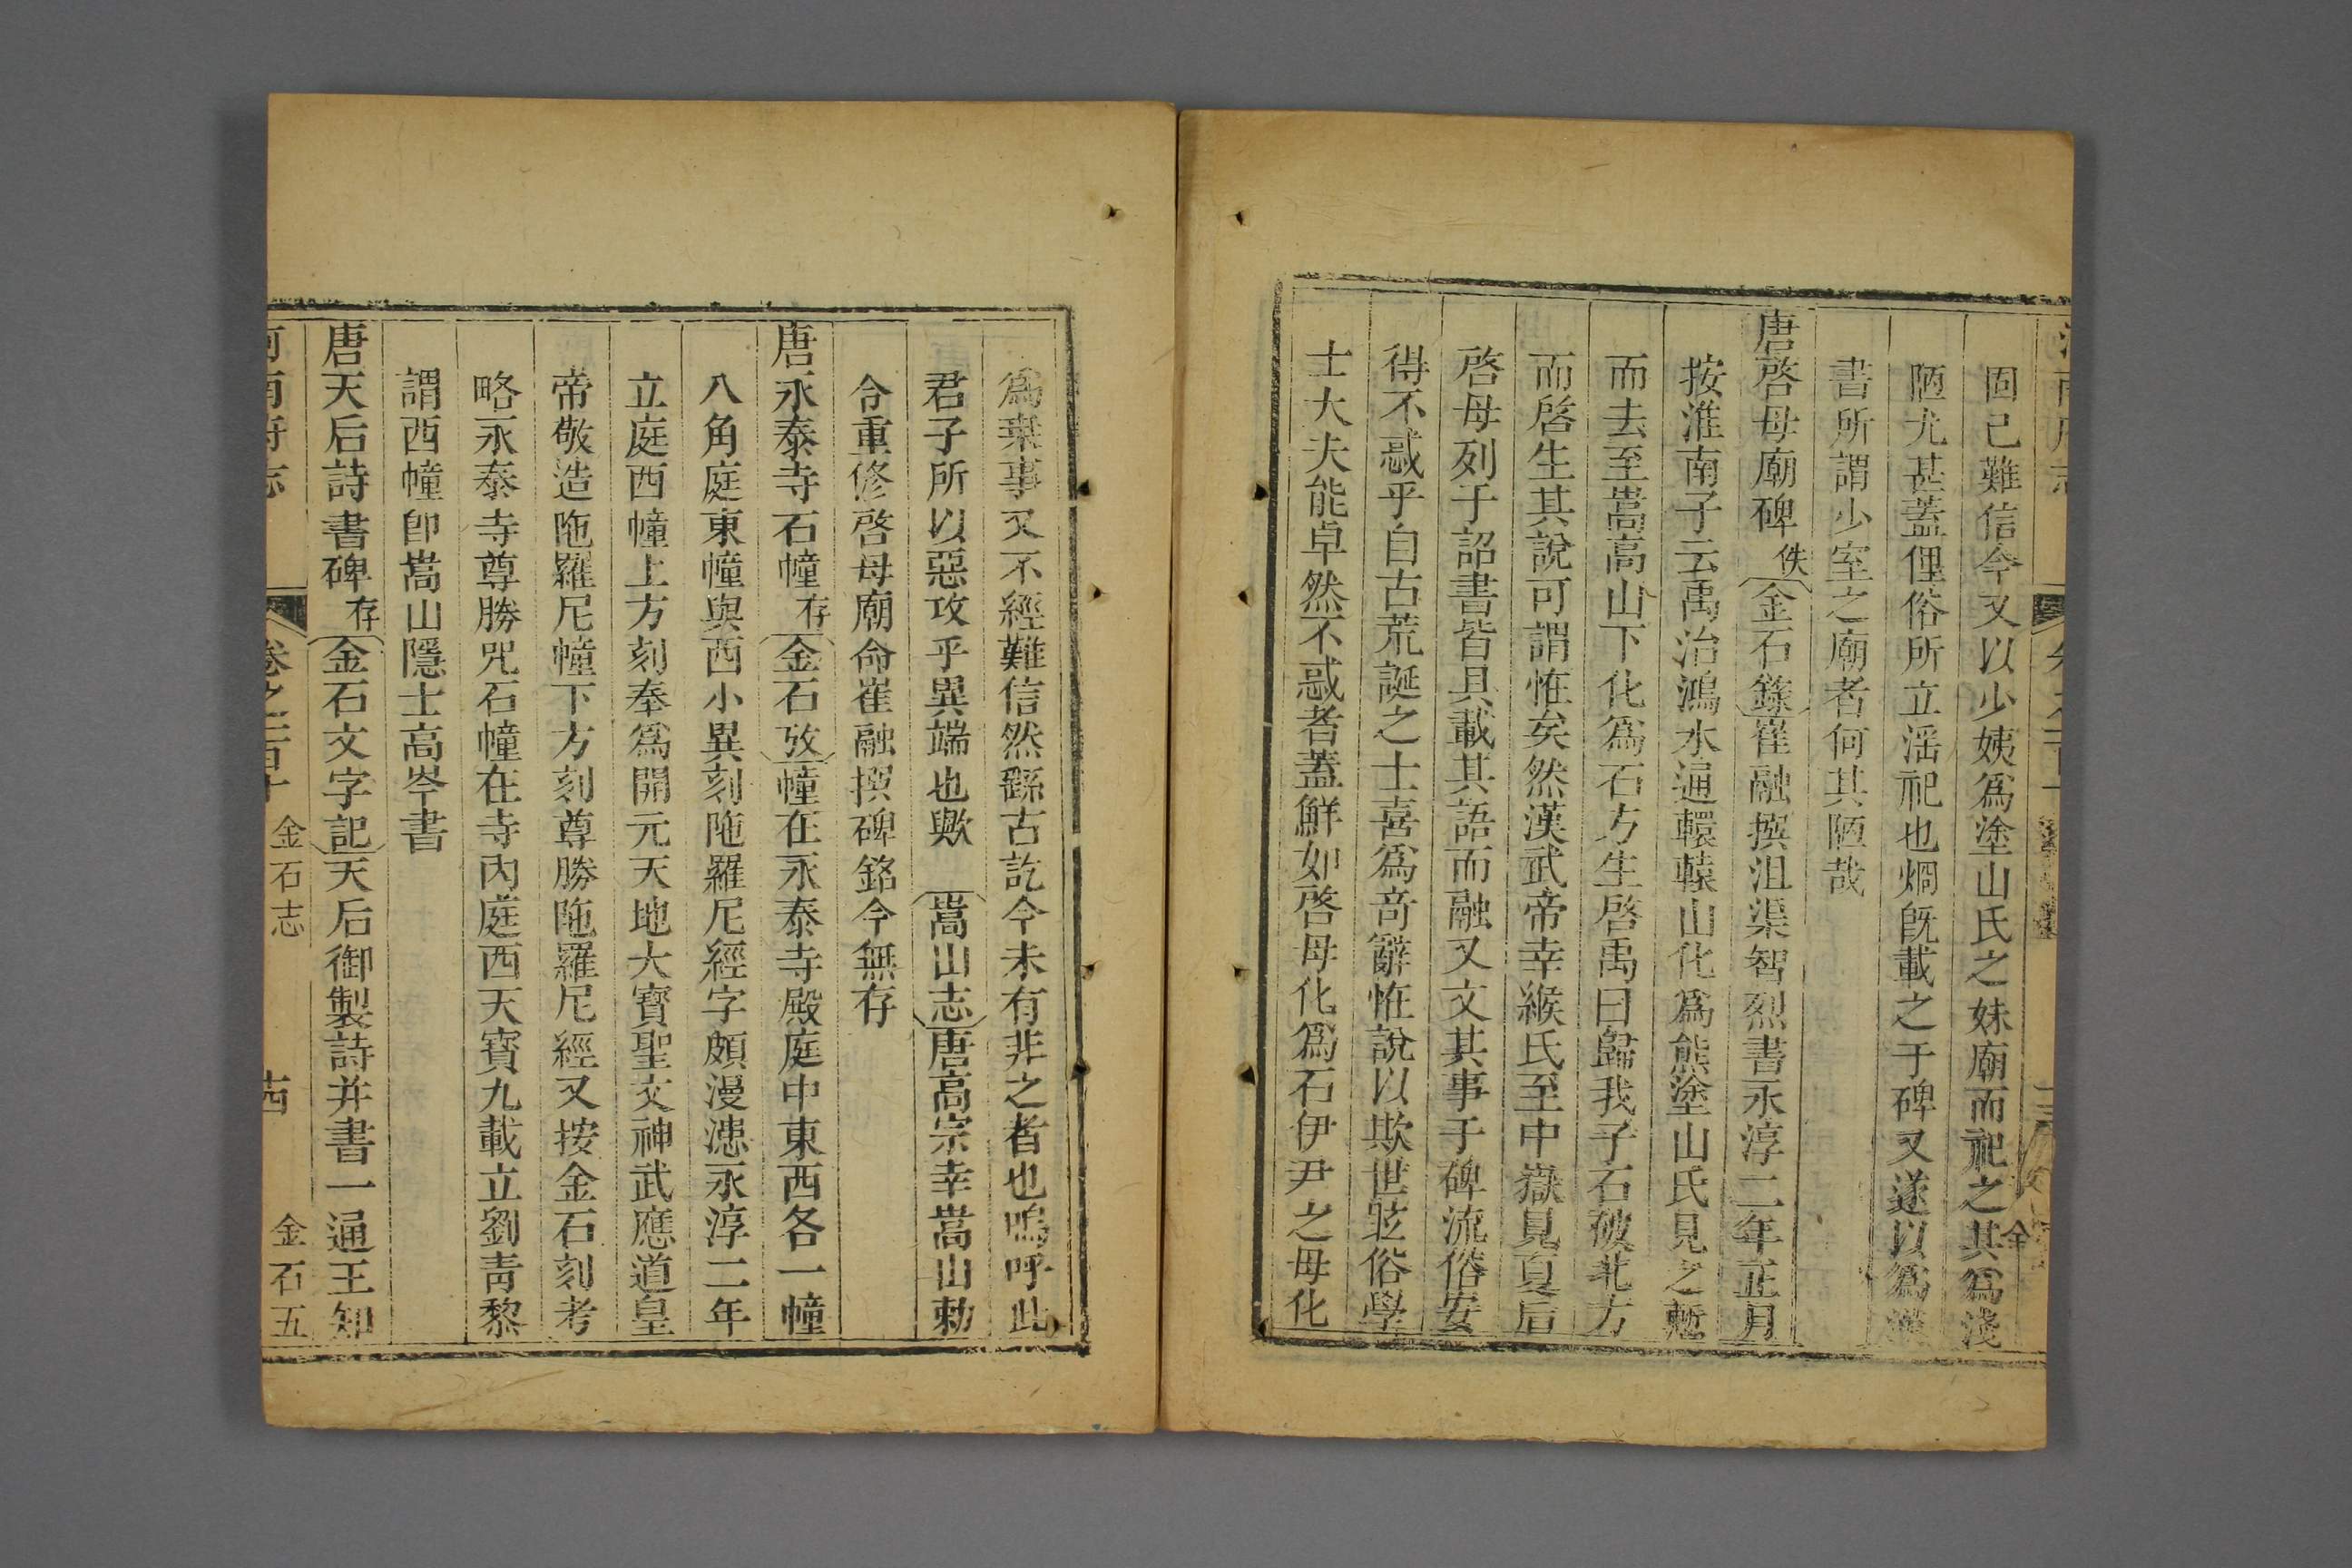 固已難信今又以少姨爲塗山氏之妹廟而祀之其爲淺
陋尤甚蓋俚俗所立滛祀也烱旣載之于碑又遂以爲漢
書所謂少室之廟者何其陋哉
唐啓母廟碑 佚 金石錄 崔融撰沮渠智烈書永淳二年正月
按淮南子云禹治鴻水通轘轅山化爲熊塗山氏見之慙
而去至嵩高山下化爲石方生啓禹曰歸我子石破北方
而啓生其說可謂恠矣然漢武帝幸緱氏至中嶽見夏后
啓母列于詔書皆具載其語而融又文其事于碑流俗安
得不惑乎自古荒誕之士喜爲奇辭恠說以欺世駭俗學
士大夫能卓然不惑者蓋鮮如啓母化爲石伊尹之母化
爲桒事又不經難信然繇古訖今未有非之者也嗚呼此
君子所以惡攻乎異端也歟 嵩山志 唐高宗幸嵩山勅
令重修啓母廟命崔融撰碑銘今無存
唐永泰寺石幢 存 金石攷 幢在永泰寺殿庭中東西各一幢
八角庭東幢與西小異刻陁羅尼經字頗漫漶永淳二年
立庭西幢上方刻奉爲開元天地大寳聖文神武應道皇
帝敬造陁羅尼幢下方刻尊勝陁羅尼經又按金石刻考
略永泰寺尊勝咒石幢在寺內庭西天寳九載立劉靑黎
謂西幢卽嵩山隱士高岑書
唐天后詩書碑 存 金石文字記 天后御製詩并書一通王知
河南府志 卷之一百十 金石志 金石五